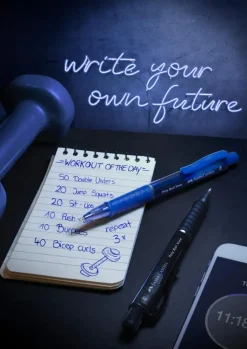 write your
own future
WORKOUT OF THE DAY
50 Double Unders
20 Jump Squats
20 Sit-Ups
10 Push
10 Burpees
40 Bicep curls
repeat
3x
11:18